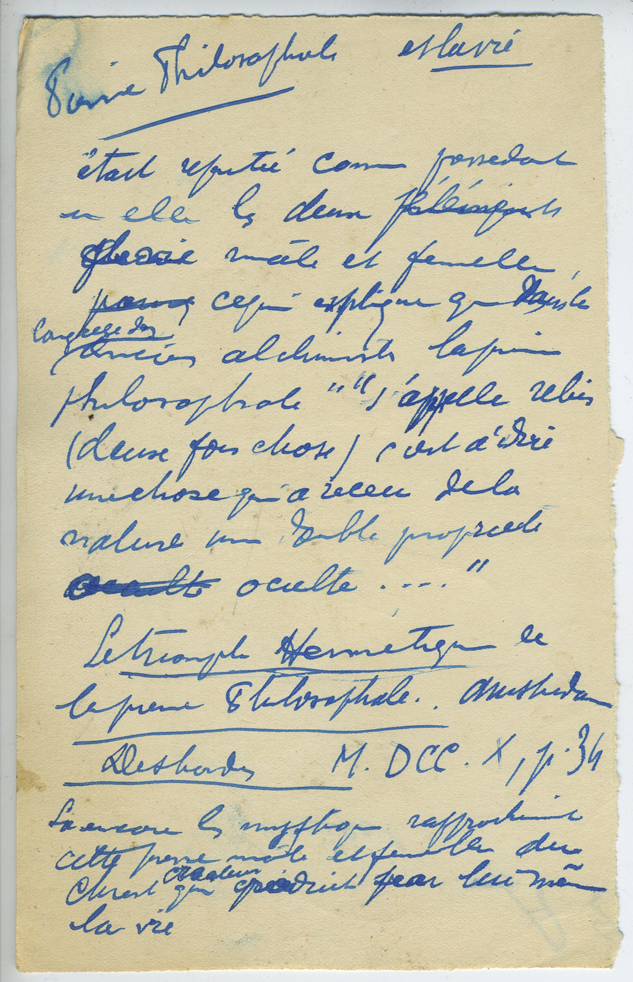 Pierre Philosophale et la vie
était reputée comme possedant
en elle les deux
mâle et femelle,
ce qui explique que dans le
langage des
anciens alchimistes la pierre
philosophale "" s'appelle rebis
(deux fois chose) c'est à dire
une chose qui a receu de la
nature une double propriété
occulte occulte . . . . "
Le triomphe Hermétique de
la pierre Philosophale. . Amsterdam
Desbordes M. DCC. X, p. 34
Là encore les mystiques rapprochaient
cette pierre mâle et femelle du
Christ créateur qui produit par lui même
la vie